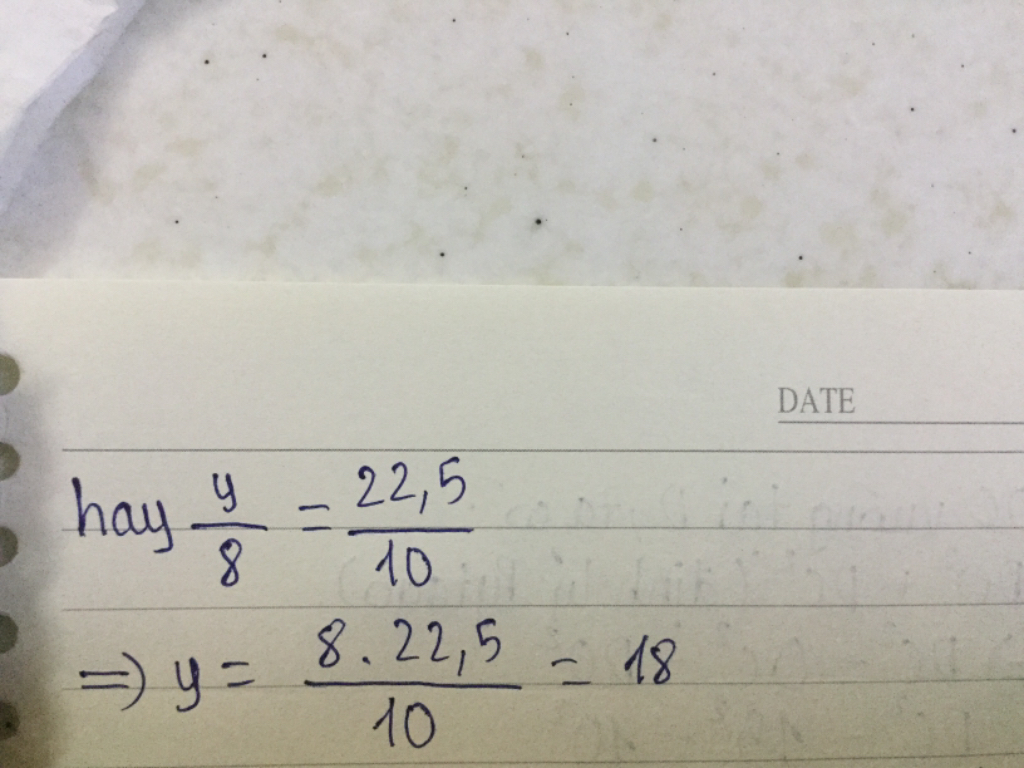 DATE
hay y/8 = 22,5/10
=) y = 8 . 22,5/10 = 18